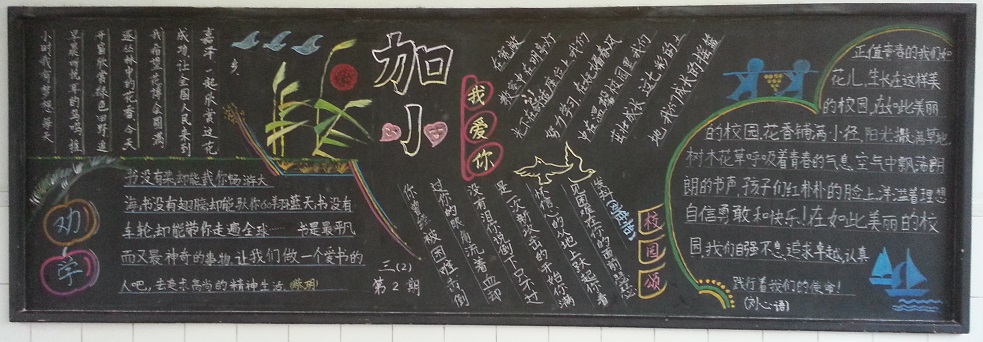 嘉泽一起欣赏这花
成功让全国人民来到
我希望花博会圆满
逐丛林中的花香今天
开窗欣赏绿色田野追
早晨听悦耳的鸟鸣推
小时我有梦想每天
劝学
书没有桨却能载你畅游大
海,书没有翅膀却能驮你翱翔蓝天,书没有
车轮却能带你走遍全球……书是最平凡
而又最神奇的事物,让我们做一个爱书的
人吧,去追求高尚的精神生活。
三(2)
第2期
加小
我爱你
在宽敞
教室中在明亮灯
努力学习在抚春风
中在温馨校园里我们
地我们成长的摇篮
你曾经被困难击倒
过你的眼角流着血却
没有泪你说倒下只不过
是一次新攻击的开始你满
怀信心的从地上跃起你看
见困难在你的面前颤抖
校园颂
正值青春的我们如
花儿,生长在这样美
的校园,在如此美丽
的校园,花香铺满小径,阳光撒满草地,
树木花草呼吸着青春的气息,空气中飘荡朗
朗的书声,孩子们红朴朴的脸上洋溢着理想
自信勇敢和快乐!在如此美丽的校
园,我们自强不息,追求卓越,认真
践行着我们的使命!
(刘心语)